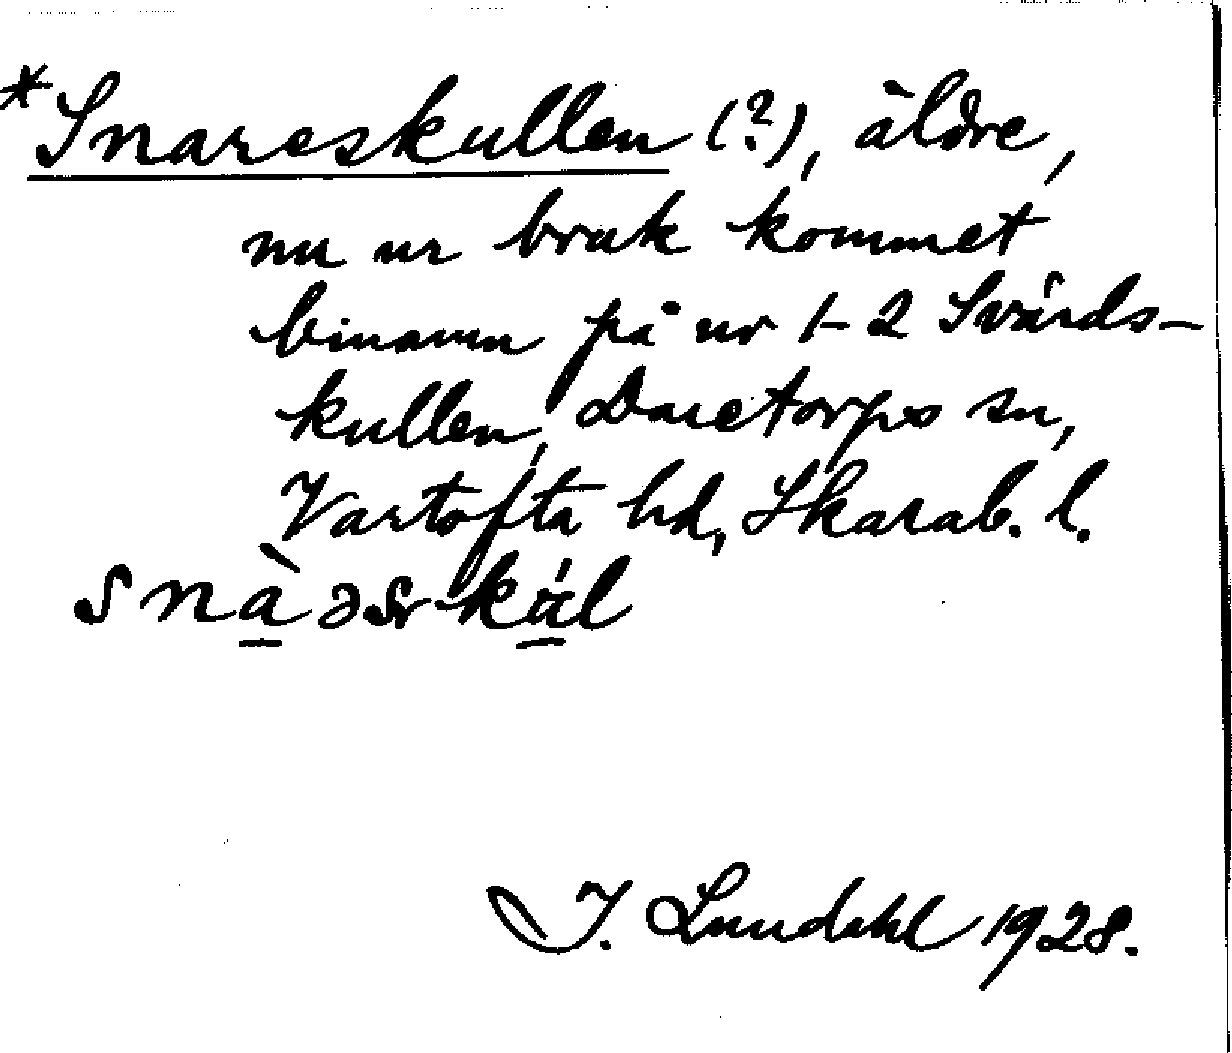 *Snareskullen (?), äldre,
nu ur bruk kommet
binamn på nr 1-2 Svärds-
kullen, Daretorps sn,
Vartofta hd, Skarab. l.
I. Lundahl 1928.